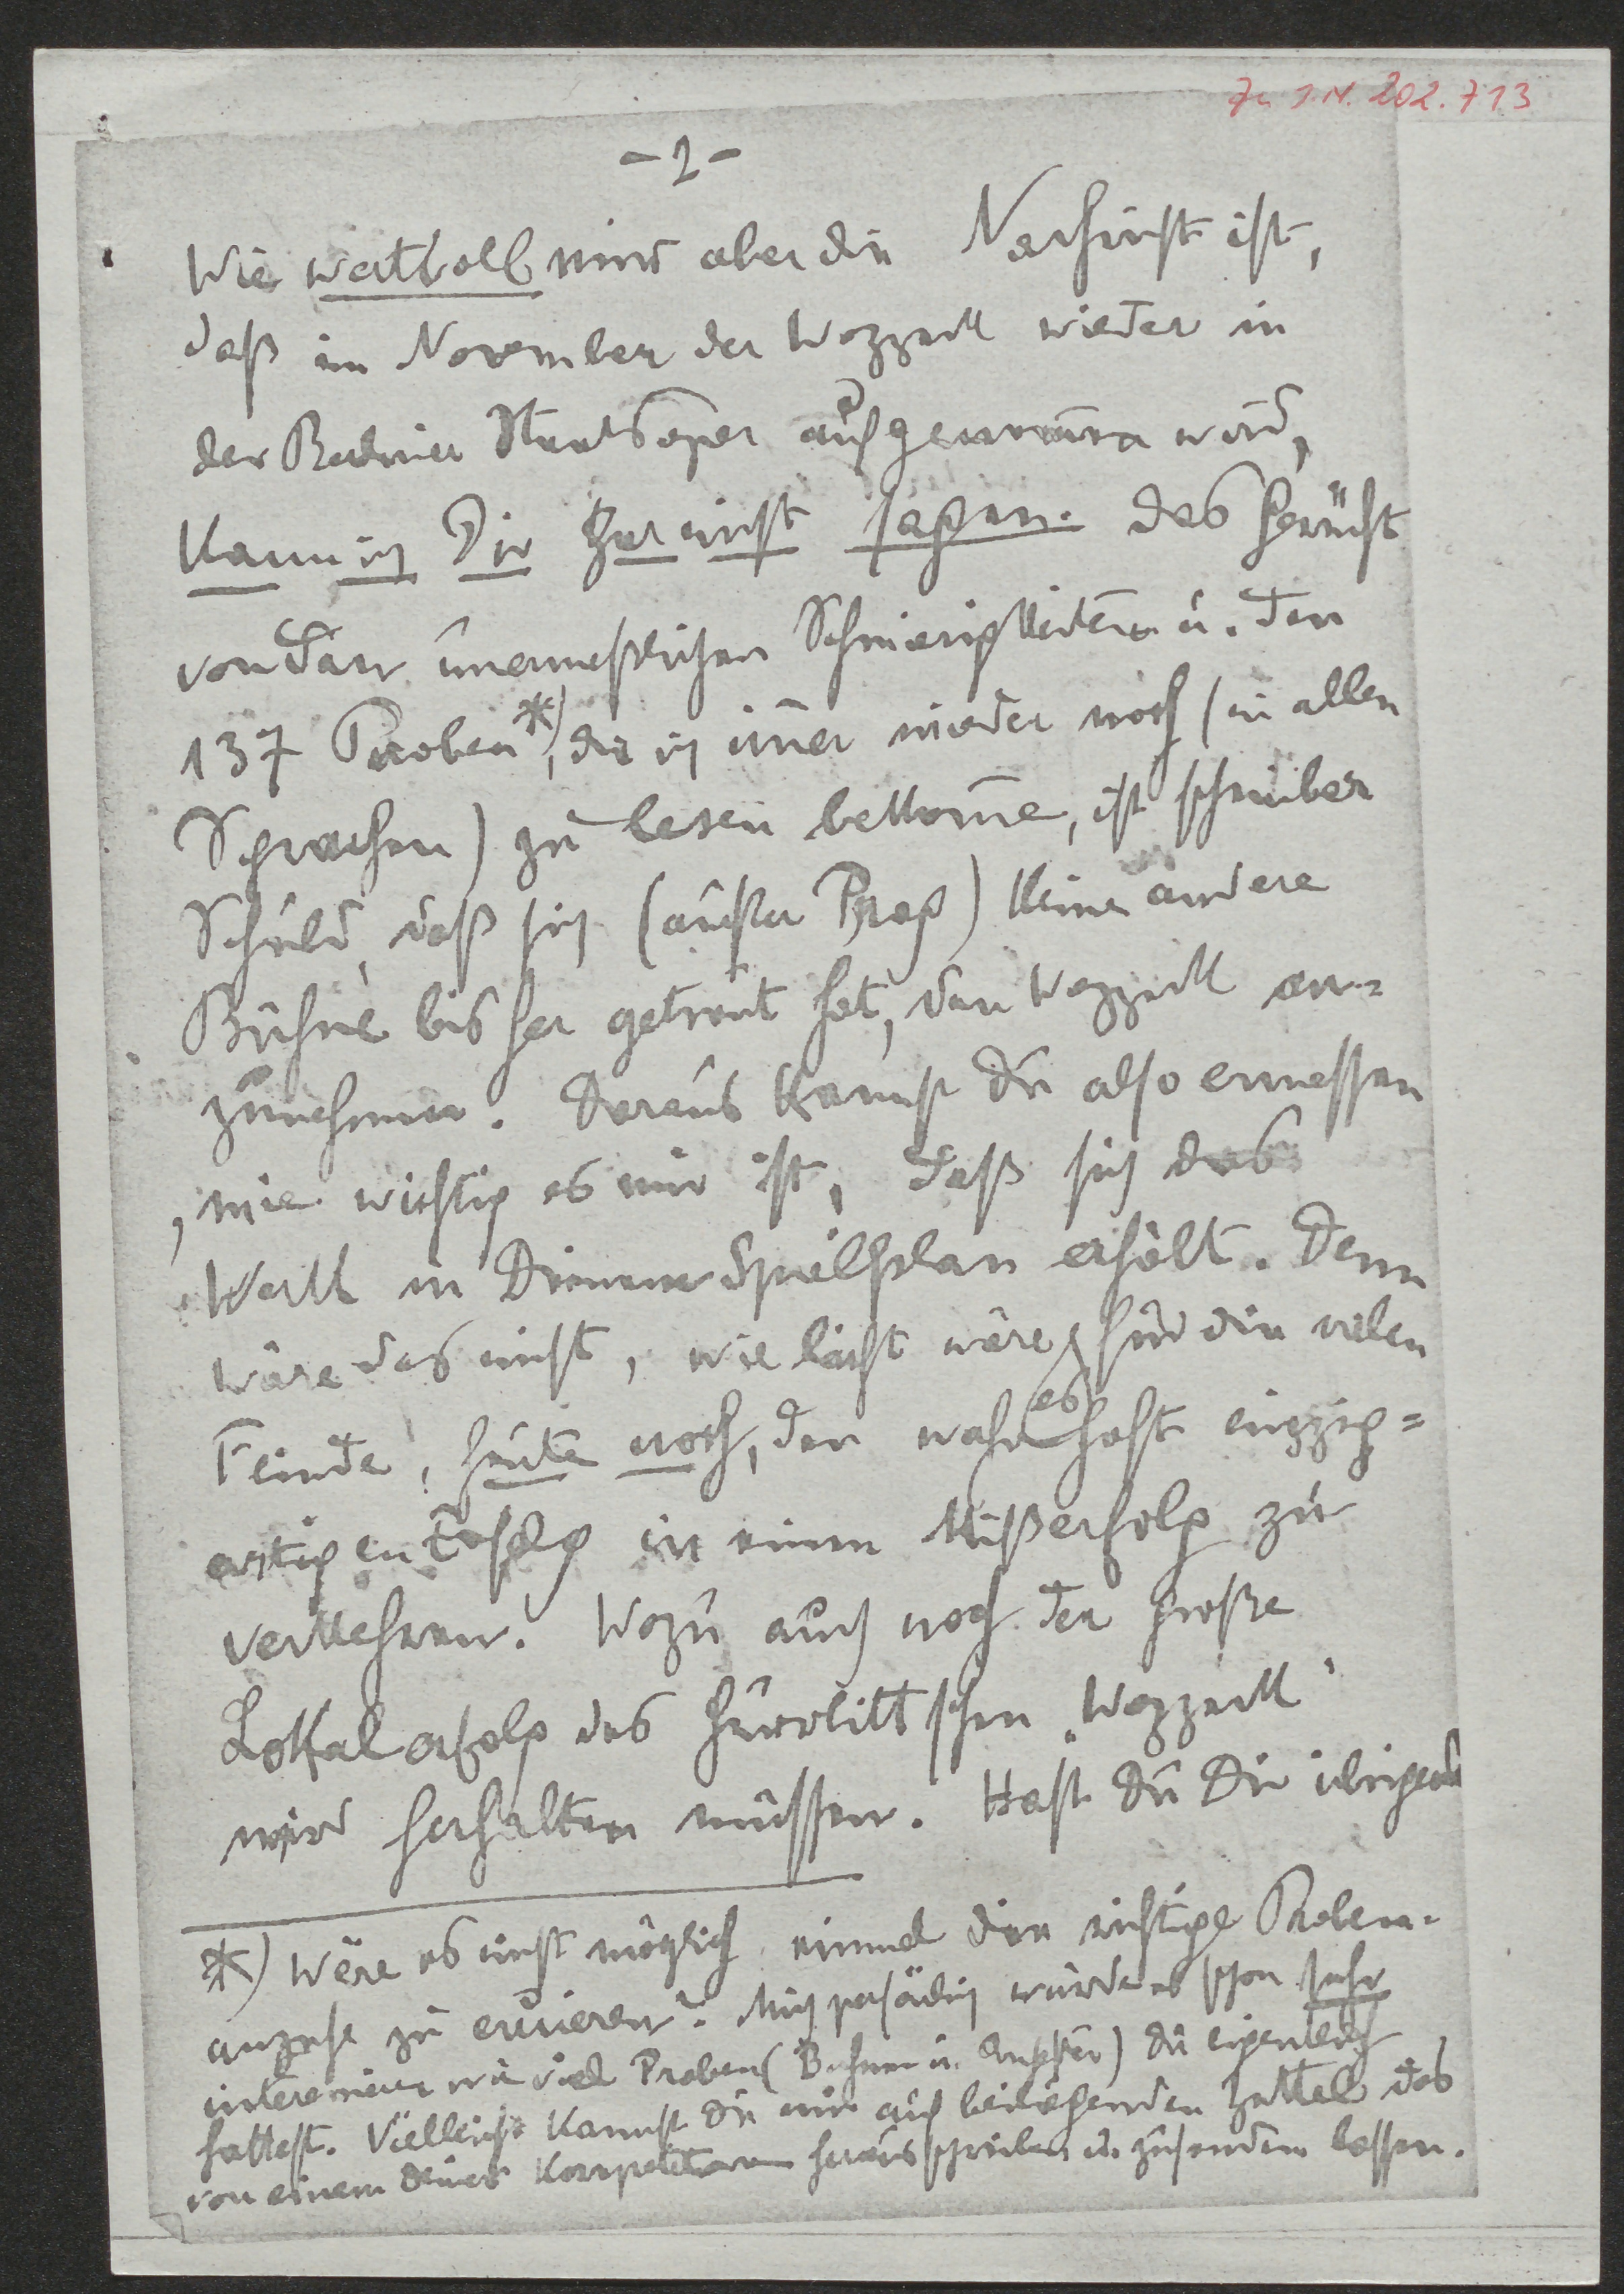 Zu I.N. 202.713
- 2 -
Wie wertvoll mir aber die Nachricht ist,
daß im November der Wozzeck wieder in
der Berliner Staatsoper aufgenom̄en wird,
kann ich Dir gar nicht sagen. Das Gerücht
von den unermeßlichen Schwierigkeiten u. den
137 Proben *), die ich im̄er wieder noch (in allen
Sprachen) zu lesen bekom̄e, ist schuld
Schuld, daß sich (außer Prag) keine andere
Bühne bisher getraut hat, den Wozzeck an-
zunehmen. Daraus kannst Du also ermessen
, wie wichtig es mir ist, daß sich das
Werk in Deinem Spielplan erhält. Denn
wäre das nicht, wie leicht wäre es für die vielen
Feinde, heute noch, den wahrhaft einzig-
artigen Erfolg in einen Mißerfolg zu
verkehren. Wozu auch noch der große
Lokalerfolg des Gurlittschen „Wozzeck“
wird herhalten müssen. Hast Du Dir übrigens
*) Wäre es nicht möglich einmal die richtige Proben-
anzahl zu eruieren? Mich persönlich würde es schon sehr
interessieren wie viel Proben (Bühnen u. Orchester) Du eigentlich
hattest. Vielleicht kannst Du mir auf beiliegenden Zettel das
von einem Deiner Korrepetitoren herausschreiben u. zusenden lassen.